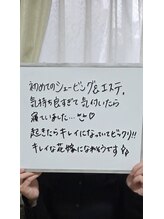 初めてのシェービング&エステ。
気持ち良すぎて気付いたら
寝ていました…♡
起きたらキレイになっていてビックリ!!
キレイな花嫁になれそうです